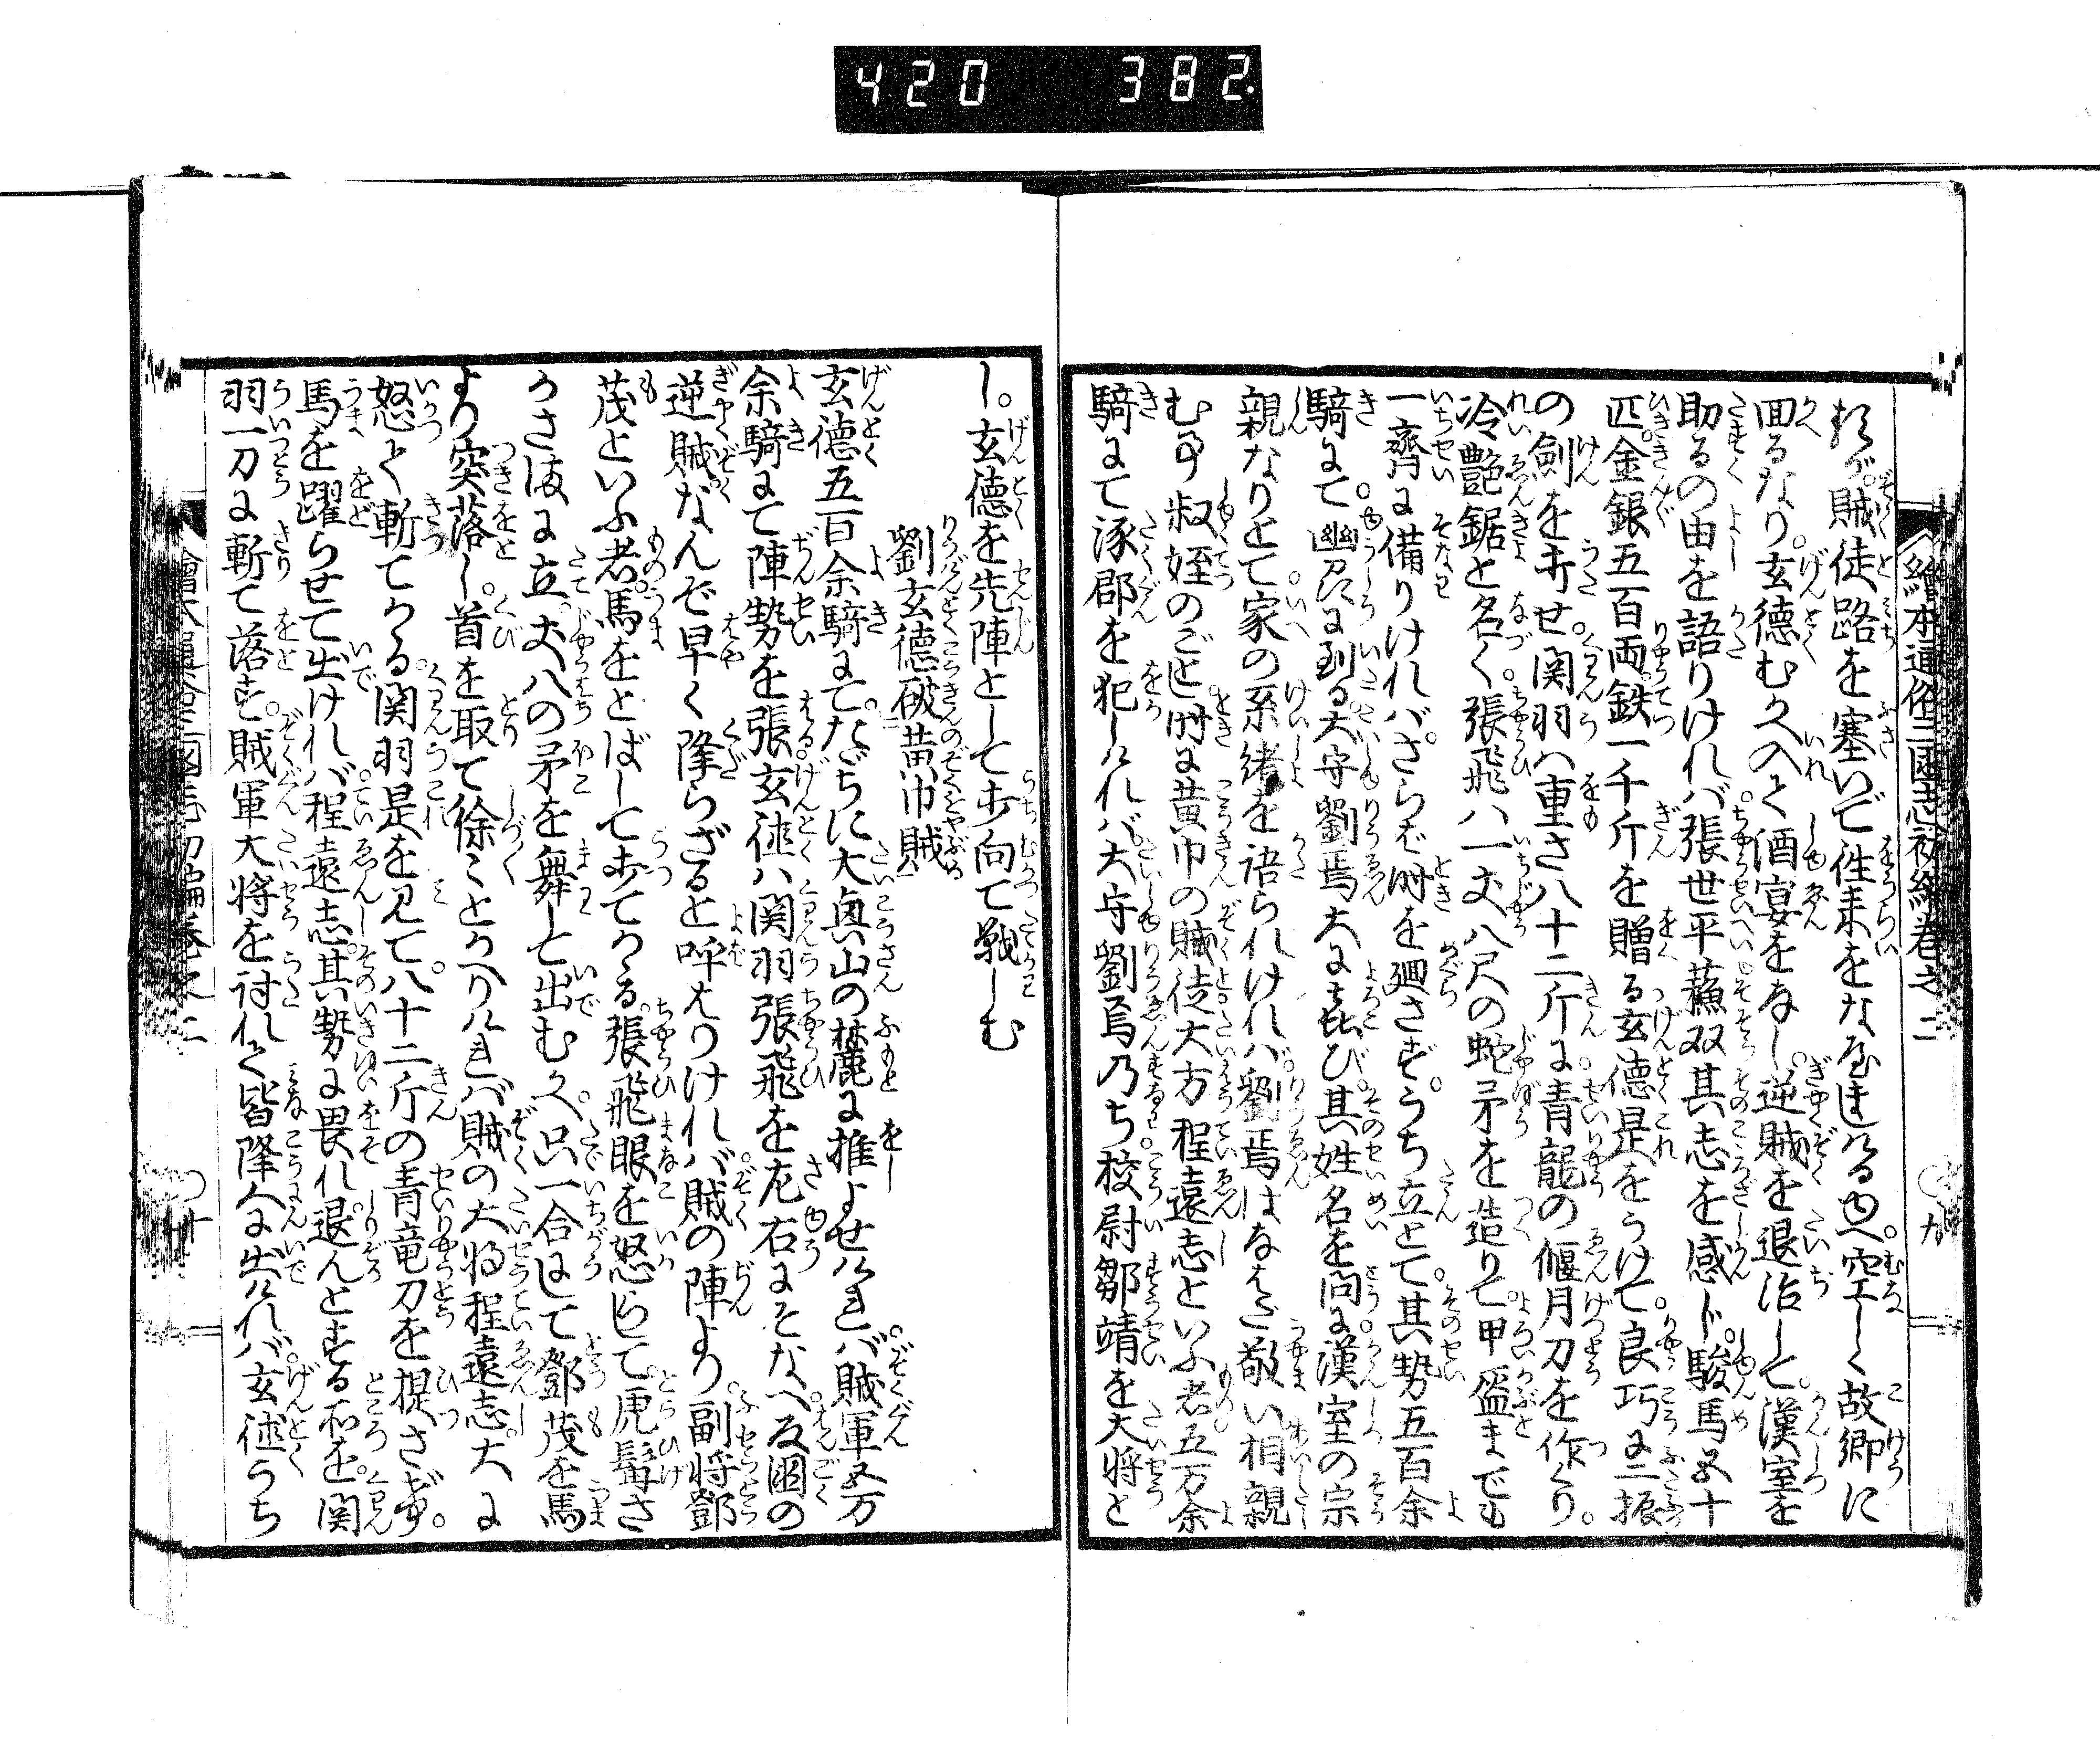 420 382.
繪本通俗三國志初編巻之二
九
るが賊徒路を塞いで徃来をなやませるゆへ空しく故郷に
回るなり玄徳むかへ入て酒宴をなし逆賊を退治して漢室を
助るの由を語りければ張世平蘇双其志を感じ駿馬五十
匹金銀五百両鉄一千斤を贈る玄徳是をうけて良巧に二振
の劍を打せ関羽ハ重さ八十二斤に青龍の偃月刀を作くり
冷艶鋸と名づく張飛ハ一丈八尺の蛇矛を造りて甲盔までも
一齊に備りければさらば時を廻さずうち立とて其勢五百余
騎にて幽州に到る大守劉焉大に喜び其姓名を問に漢室の宗
親なりとて家の系緒を語られければ劉焉はなはだ敬い相親
む事叔姪のごとし時に黄巾の賊徒大方程遠志といふ者五万余
騎にて涿郡を犯しければ大守劉焉乃ち校尉鄒靖を大将と
し玄徳を先陣として打向て戦しむ
劉玄徳破黄巾賊
玄徳五百余騎にてたゞちに大興山の麓に推よせければ賊軍五万
余騎にて陣勢を張玄徳ハ関羽張飛を左右にそなへ反国の
逆賊なんぞ早く降らざると呼はりければ賊の陣より副将鄧
茂といふ者馬をとばして打てかゝる張飛眼を怒らして虎髯さ
かさまに立丈八の矛を舞して出むかへ只一合にして鄧茂を馬
より突落し首を取て徐々とかへりければ賊の大将程遠志大に
怒て斬てかゝる関羽是を見て八十二斤の青竜刀を提さげ
馬を躍らせて出ければ程遠志其勢に畏れ退んとする所を関
羽一刀に斬て落す賊軍大将を討れて皆降人に出ければ玄徳うち